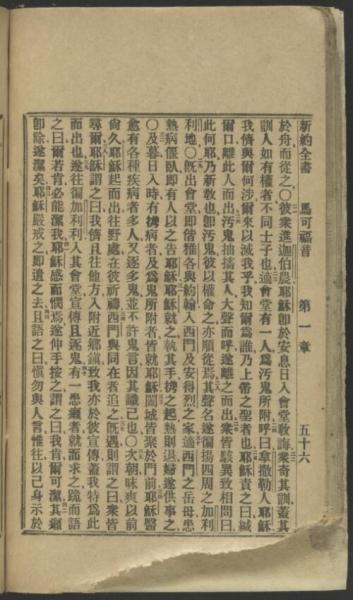 新約全書　馬可福音　第一章　五十六
於舟而從之○彼衆進迦伯農耶穌卽於安息日入會堂敎誨衆奇其訓蓋其
訓人如有權者不同士子也適會堂有一人爲汚鬼所附呼曰拿撒勒人耶穌
我儕與爾何涉爾來以滅我乎我知爾爲誰乃上帝之聖者也耶穌責之曰緘
爾口離此人而出汚鬼抽搐其人大聲而呼遂離之而出衆皆駭異致相問曰
此何耶乃新敎也卽汚鬼彼以權命之亦順從焉其聲名遂徧揚四周之加利
利地○旣出會堂卽偕雅各與約翰入西門及安得烈之家適西門之岳母患
熱病偃臥卽有人以之告耶穌耶穌就之執其手扶之起熱則退婦遂供事之
○及暮日入時有攜病者及爲鬼所附者皆就耶穌闔城皆聚於門前耶穌醫
愈有各種疾病者多人又逐多鬼並不許鬼言因其識己也○次朝昧爽以前
尙久耶穌起而出往野處在彼祈禱西門與同在者追之旣遇則謂之曰衆皆
尋爾耶穌謂之曰我儕且往他方入附近鄕鎭致我亦於彼宣傳蓋我特爲此
而出也遂徧加利利入其會堂宣傳且逐鬼有一患癩者就而求之跪而語
之曰爾若肯必能潔我耶穌感而憫焉遂伸手按之謂之曰我肯爾可潔其癩
卽除遂潔矣耶穌嚴戒之卽遣之去且語之曰愼勿與人言惟往以己身示於